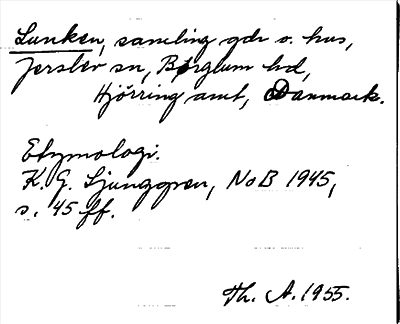 Lunken, samling gdr o. hus,
Jerslev sn, Børglum hd,
Hjörring amt, Danmark.
Etymologi.
K. G. Ljunggren, NoB 1945,
s. 45 ff.
Th. A. 1955.